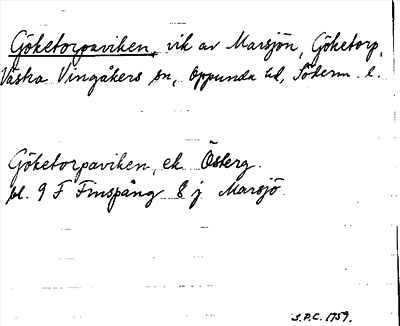 Göketorpaviken, vik av Marsjön, Göketorp,
Västra Vingåkers sn, Oppunda hd, Söderm. l.
Göketorpaviken, ek Österg.
bl. 9 F Finspång 8 j Marsjö.
S.P.C. 1759.